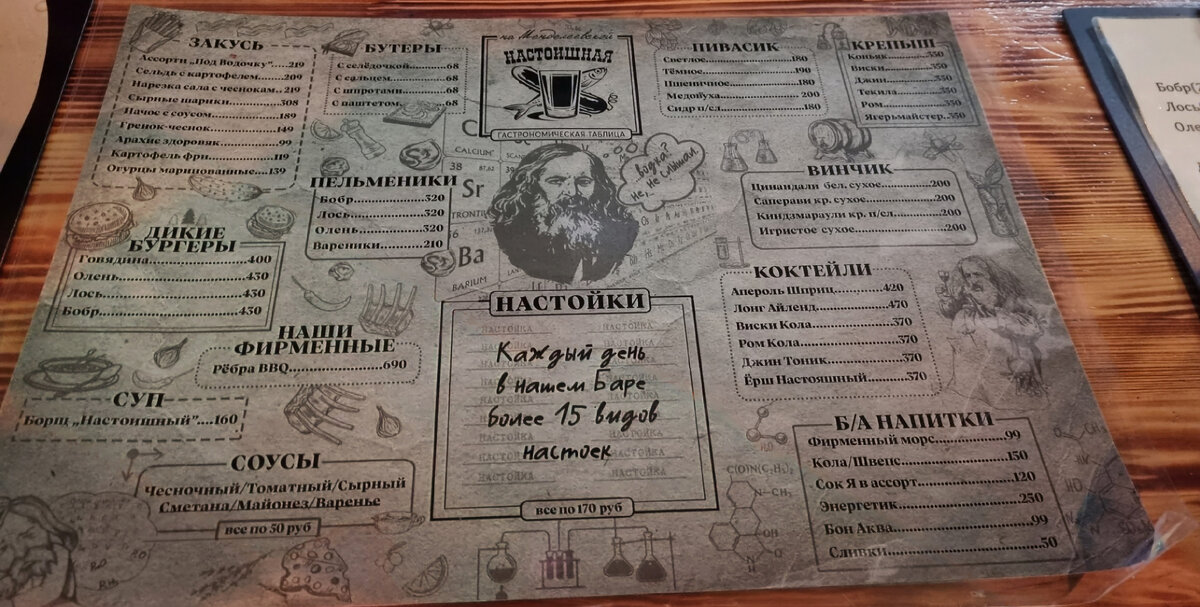 ЗАКУСЬ
Ассорти „Под Водочку”.....219
Сельдь с картофелем.......209
Нарезка сала с чесноком..219
Сырные шарики.......308
Начос с соусом.......189
Гренок-чеснок.......149
Арахис здоровяк.......99
Картофель фри.......119
Огурцы маринованные....139
БУТЕРЫ
С селёдочкой.......68
С сальцем.......68
С шпротами.......68
С паштетом.......68
на Менделеевской
НАСТОИШНАЯ
ГАСТРОНОМИЧЕСКАЯ ТАБЛИЦА
ПИВАСИК
Светлое.......180
Тёмное.......190
Пшеничное.......180
Медовуха.......200
Сидр п/сл.......180
КРЕПЫШ
Коньяк.......350
Виски.......350
Джин.......350
Текила.......350
Ром.......350
Ягерьмайстер.350
Лось
ПЕЛЬМЕНИКИ
Бобр.......320
Лось.......320
Олень.......320
Вареники.......210
CALCIUM
38
87,62
Sr
Ba
BARIUM
...водка?
не, не слышал.
ВИНЧИК
Цинандали бел. сухое.......200
Саперави кр. сухое.......200
Киндзмараули кр. п/сл.......200
Игристое сухое.......200
ДИКИЕ
БУРГЕРЫ
Говядина.......400
Олень.......430
Лось.......430
Бобр.......430
НАШИ
ФИРМЕННЫЕ
Рёбра BBQ.......690
СУП
Борщ „Настоишный”....160
СОУСЫ
Чесночный/Томатный/Сырный
Сметана/Майонез/Варенье
все по 50 руб
НАСТОЙКИ
Каждый день
в нашем Баре
более 15 видов
настоек
все по 170 руб
КОКТЕЙЛИ
Апероль Шприц.......420
Лонг Айленд.......470
Виски Кола.......370
Ром Кола.......370
Джин Тоник.......370
Ёрш Настояшный.......370
Б/А НАПИТКИ
Фирменный морс.......99
Кола/Швепс.......150
Сок Я в ассорт.......120
Энергетик.......250
Бон Аква.......99
Сливки.......50